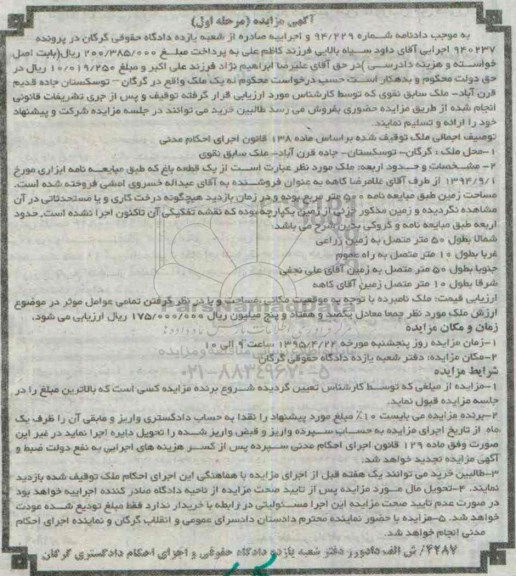 آگهی مزایده (مرحله اول)
به موجب دادنامه شماره ۹۴/۲۲۹ و اجراییه صادره از شعبه یازده دادگاه حقوقی گرگان در پرونده
۹۴۰۲۳۷ اجرایی آقای داود سیاه بالایی فرزند کاظم علی به پرداخت مبلغ ۲۰۰/۳۸۵/۰۰۰ ریال(بابت اصل
خواسته و هزینه دادرسی )در حق آقای علیرضا ابراهیم نژاد فرزند علی اکبر و مبلغ ۱۰/۰۱۹/۲۵۰ ریال در
حق دولت محکوم و بدهکار است حسب درخواست محکوم له یک ملک واقع در گرگان – توسکستان جاده قدیم
قرن آباد– ملک سابق نقوی که توسط کارشناس مورد ارزیابی قرار گرفته توقیف و پس از جری تشریفات قانونی
انجام شده از طریق مزایده حضوری بفروش می رسد طالبین خرید می توانند در جلسه مزایده شرکت و پیشنهاد
خود را ارائه و تسلیم نمایند.
توصیف اجمالی ملک توقیف شده براساس ماده ۱۳۸ قانون اجرای احکام مدنی
۱–محل ملک : گرگان– توسکستان– جاده قرن آباد– ملک سابق نقوی
۲– مشخصات و حدود اربعه: ملک مورد نظر عبارت است از یک قطعه باغ که طبق مبایعه نامه ابزاری مورخ
۱۳۹۴/۹/۱ از طرف آقای غلامرضا کاهه به عنوان فروشنده به آقای عبداله خسروی امشی فروخته شده است.
مساحت زمین طبق مبایعه نامه ۵۰۰ متر مربع بوده و در زمان بازدید هیچگونه درخت کاری و یا مستحدثاتی در آن
مشاهده نگردیده و زمین مذکور جزئی از زمین یکپارچه بوده که نقشه تفکیکی آن تاکنون اجرا نشده است. حدود
اربعه طبق مبایعه نامه و کروکی بدین شرح می باشد:
شمالا بطول ۵۰ متر متصل به زمین زراعی
غربا بطول ۱۰ متر متصل به راه عموم
جنوبا بطول ۵۰ متر متصل به زمین آقای ملی نجفی
شرقا بطول ۱۰ متر متصل زمین آقای کاهه
ارزیابی قیمت: ملک نامبرده با توجه به موقعیت مکانی مساحت و با در نظر گرفتن تمامی عوامل موثر در موضوع
ارزش ملک مورد نظر جمعا معادل یکصد و هفتاد و پنج میلیون ریال ۱۷۵/۰۰۰/۰۰۰ ریال ارزیابی می شود.
زمان و مکان مزایده
۱–زمان مزایده روز پنجشنبه مورخه ۱۳۹۵/۴/۲۴ ساعت ۹ الی ۱۰
۲–مکان مزایده: دفتر شعبه یازده دادگاه حقوقی گرگان
شرایط مزایده
۰۲۱–۸۸۳۴۹۶۷۰–۵
۱–مزایده از مبلغی که توسط کارشناس تعیین گردیده شروع برنده مزایده کسی است که بالاترین مبلغ را در
جلسه مزایده قبول نماید.
۲–برنده مزایده می بایست ۱۰٪ مبلغ مورد پیشنهاد را نقدا به حساب دادگستری واریز و مابقی آن را ظرف یک
ماه از تاریخ اجرای مزایده به حساب سپرده واریز و قبض واریز شده را تحویل دایره اجرا نماید در غیر این
صورت وفق ماده ۱۲۹ قانون اجرای احکام مدنی سپرده پس از کسر هزینه های اجرایی به نفع دولت ضبط و
آگهی مزایده تجدید خواهد شد.
۳–طالبین خرید می توانند یک هفته قبل از اجرای مزایده با هماهنگی این اجرای احکام ملک توقیف شده بازدید
نمایند. ۴–تحویل مال مورد مزایده پس از تایید صحت مزایده از ناحیه دادگاه صادر کننده اجراییه خواهد بود
در صورت عدم تایید صحت مزایده این اجرا مسئولیتی در رابطه با خریدار ندارد فقط مبلغ تودیع شده عودت
خواهد شد. ۵–مزایده با حضور نماینده محترم دادستان دادسرای عمومی و انقلاب گرگان و نماینده اجرای احکام
مدنی انجام خواهد شد.
۴۲۸۷/ ش الف دادورز دفتر شعبه یازده دادگاه حقوقی و اجرای احکام دادگستری گرگان